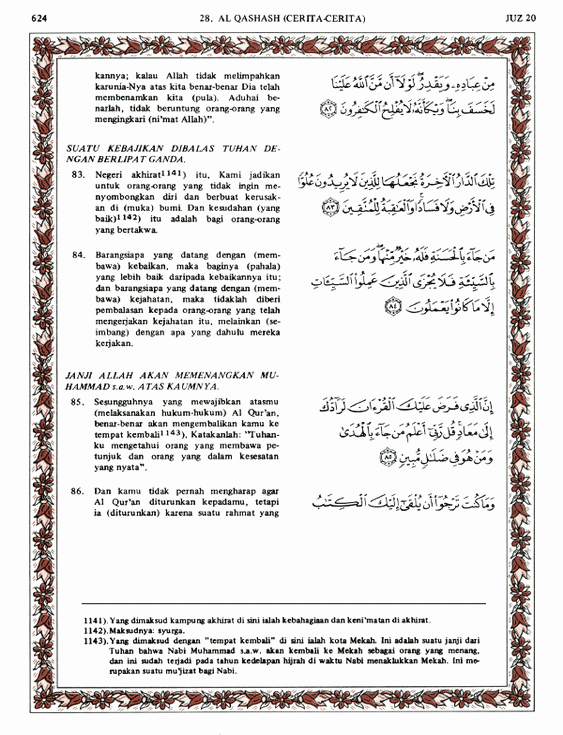 624
28. AL QASHASH (CERITA-CERITA)
JUZ 20
kannya; kalau Allah tidak melimpahkan
karunia-Nya atas kita benar-benar Dia telah
membenamkan kita (pula). Aduhai be-
narlah, tidak beruntung orang-orang yang
mengingkari (ni'mat Allah)".
مِنْ عِبَادِهِۦ وَيَقْدِرُ لَوْلَآ أَن مَّنَّ ٱللَّهُ عَلَيْنَا
لَخَسَفَ بِنَا وَيْكَأَنَّهُۥ لَا يُفْلِحُ ٱلْكَٰفِرُونَ ٨٢
SUATU KEBAJIKAN DIBALAS TUHAN DE-
NGAN BERLIPAT GANDA.
83. Negeri akhirat1141) itu, Kami jadikan
untuk orang-orang yang tidak ingin me-
nyombongkan diri dan berbuat kerusak-
an di (muka) bumi. Dan kesudahan (yang
baik)1142) itu adalah bagi orang-orang
yang bertakwa.
تِلْكَ ٱلدَّارُ ٱلْءَاخِرَةُ نَجْعَلُهَا لِلَّذِينَ لَا يُرِيدُونَ عُلُوًّا
فِى ٱلْأَرْضِ وَلَا فَسَادًا وَٱلْعَٰقِبَةُ لِلْمُتَّقِينَ ٨٣
84. Barangsiapa yang datang dengan (mem-
bawa) kebaikan, maka baginya (pahala)
yang lebih baik daripada kebaikannya itu;
dan barangsiapa yang datang dengan (mem-
bawa) kejahatan, maka tidaklah diberi
pembalasan kepada orang-orang yang telah
mengerjakan kejahatan itu, melainkan (se-
imbang) dengan apa yang dahulu mereka
kerjakan.
مَن جَآءَ بِٱلْحَسَنَةِ فَلَهُۥ خَيْرٌ مِّنْهَا وَمَن جَآءَ
بِٱلسَّيِّئَةِ فَلَا يُجْزَى ٱلَّذِينَ عَمِلُوا۟ ٱلسَّيِّـَٔاتِ
إِلَّا مَا كَانُوا۟ يَعْمَلُونَ ٨٤
JANJI ALLAH AKAN MEMENANGKAN MU-
HAMMAD s.a.w. ATAS KAUMNYA.
85. Sesungguhnya yang mewajibkan atasmu
(melaksanakan hukum-hukum) Al Qur'an,
benar-benar akan mengembalikan kamu ke
tempat kembali1143), Katakanlah: "Tuhan-
ku mengetahui orang yang membawa pe-
tunjuk dan orang yang dalam kesesatan
yang nyata".
إِنَّ ٱلَّذِى فَرَضَ عَلَيْكَ ٱلْقُرْءَانَ لَرَآدُّكَ
إِلَىٰ مَعَادٍ قُل رَّبِّىٓ أَعْلَمُ مَن جَآءَ بِٱلْهُدَىٰ
وَمَنْ هُوَ فِى ضَلَٰلٍ مُّبِينٍ ٨٥
86. Dan kamu tidak pernah mengharap agar
Al Qur'an diturunkan kepadamu, tetapi
ia (diturunkan) karena suatu rahmat yang
وَمَا كُنتَ تَرْجُوٓا۟ أَن يُلْقَىٰٓ إِلَيْكَ ٱلْكِتَٰبُ
1141). Yang dimaksud kampung akhirat di sini ialah kebahagiaan dan keni'matan di akhirat.
1142). Maksudnya: syurga.
1143). Yang dimaksud dengan "tempat kembali" di sini ialah kota Mekah. Ini adalah suatu janji dari
Tuhan bahwa Nabi Muhammad s.a.w. akan kembali ke Mekah sebagai orang yang menang,
dan ini sudah terjadi pada tahun kedelapan hijrah di waktu Nabi menaklukkan Mekah. Ini me-
rupakan suatu mu'jizat bagi Nabi.